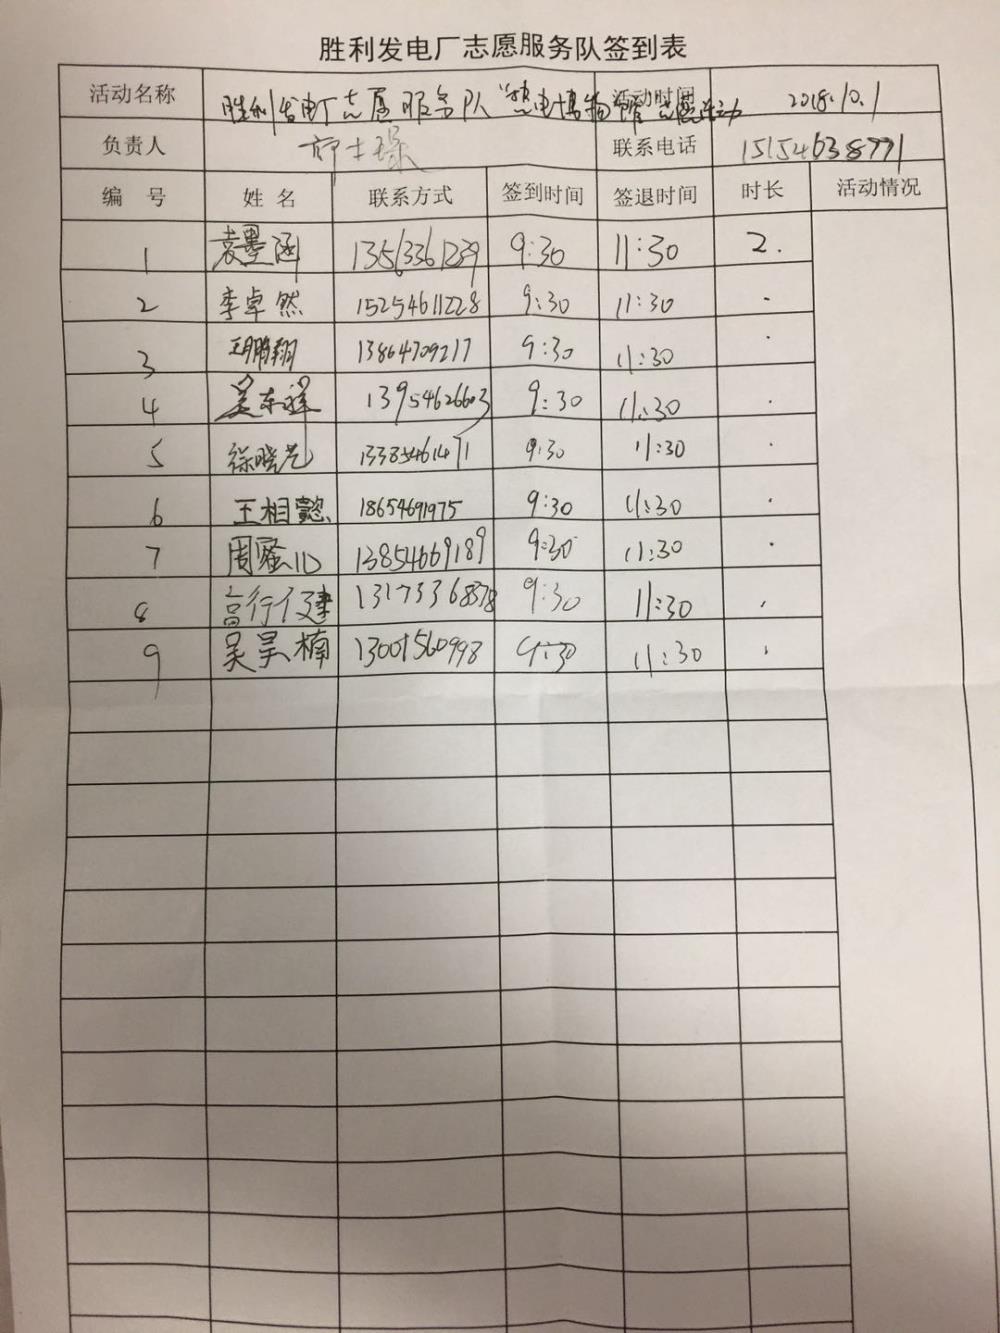 胜利发电厂志愿服务队签到表
活动名称 胜利发电厂志愿服务队“热电博物馆”志愿活动 活动时间 2018.10.1
负责人 联系电话 15154638771
编 号 姓 名 联系方式 签到时间 签退时间 时长 活动情况
1 袁墨涵 13563361239 9:30 11:30 2.
2 李卓然 15254611228 9:30 11:30 .
3 王鹏翔 13864709217 9:30 11:30 .
4 吴东祥 13954626603 9:30 11:30 .
5 徐晓艺 13385461471 9:30 11:30 .
6 王相懿 18654691975 9:30 11:30 .
7 周 13854669189 9:30 11:30 .
8 高行健 13173368378 9:30 11:30 .
9 吴昊楠 13001560998 9:30 11:30 .